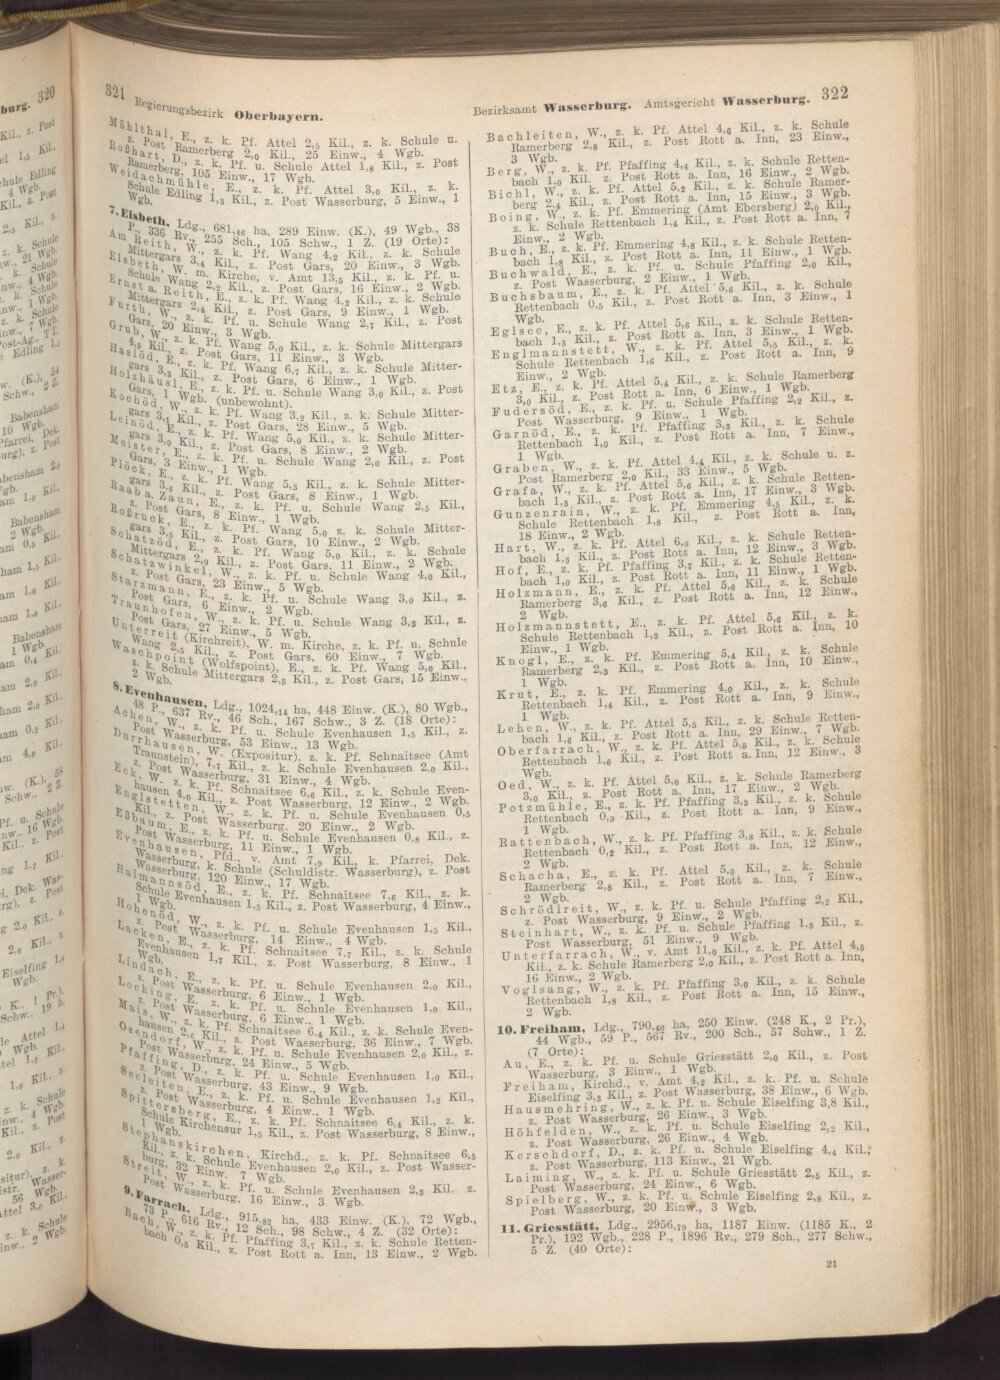 320
burg.
321
Regierungsbezirk Oberbayern.
Mühlthal, E., z. k. Pf. Attel 2,5 Kil., z. k. Schule u.
z. Post Ramerberg 2,0 Kil., 25 Einw., 4 Wgb.
Roßhart, D., z. k. Pf. u. Schule Attel 1,8 Kil., z. Post
Ramerberg, 105 Einw., 17 Wgb.
Weidachmühle, E., z. k. Pf. Attel 3,0 Kil., z. k.
Schule Edling 1,3 Kil., z. Post Wasserburg, 5 Einw., 1
Wgb.
7. Elsbeth, Ldg., 681,46 ha, 289 Einw. (K.), 49 Wgb., 38
P., 336 Rv., 255 Sch., 105 Schw., 1 Z. (19 Orte):
Am Reith, W., z. k. Pf. Wang 4,2 Kil., z. k. Schule
Mittergars 3,4 Kil., z. Post Gars, 20 Einw., 3 Wgb.
Elsbeth, W. m. Kirche, v. Amt 13,5 Kil., z. k. Pf. u.
Schule Wang 2,2 Kil., z. Post Gars, 16 Einw., 2 Wgb.
Ernst a. Reith, E., z. k. Pf. Wang 4,2 Kil., z. k. Schule
Mittergars 2,4 Kil., z. Post Gars, 9 Einw., 1 Wgb.
Furth, W., z. k. Pf. u. Schule Wang 2,7 Kil., z. Post
Gars, 20 Einw., 3 Wgb.
Grub, W., z. k. Pf. Wang 5,0 Kil., z. k. Schule Mittergars
4,5 Kil., z. Post Gars, 11 Einw., 3 Wgb.
Haslöd, E., z. k. Pf. Wang 6,7 Kil., z. k. Schule Mitter-
gars 3,5 Kil., z. Post Gars, 6 Einw., 1 Wgb.
Holzhäusl, E., z. k. Pf. u. Schule Wang 3,0 Kil., z. Post
Gars, 1 Wgb. (unbewohnt).
Kochöd, W., z. k. Pf. Wang 3,2 Kil., z. k. Schule Mitter-
gars 3,1 Kil., z. Post Gars, 28 Einw., 5 Wgb.
Leinöd, E., z. k. Pf. Wang 5,0 Kil., z. k. Schule Mitter-
gars 3,0 Kil., z. Post Gars, 8 Einw., 2 Wgb.
Meister, E., z. k. Pf. u. Schule Wang 2,0 Kil., z. Post
Gars, 3 Einw., 1 Wgb.
Plöck, E., z. k. Pf. Wang 5,3 Kil., z. k. Schule Mitter-
gars 3,0 Kil., z. Post Gars, 8 Einw., 1 Wgb.
Raab a. Zaun, E., z. k. Pf. u. Schule Wang 2,5 Kil.,
z. Post Gars, 8 Einw., 1 Wgb.
Roßruck, E., z. k. Pf. Wang 5,0 z. k. Schule Mitter-
gars 3,5 Kil., z. Post Gars, 10 Einw., 2 Wgb.
Schatzöd, E., z. k. Pf. Wang 5,0 Kil., z. k. Schule
Mittergars 2,0 Kil., z. Post Gars, 11 Einw., 2 Wgb.
Schatzwinkel, W., z. k. Pf. u. Schule Wang 4,0 Kil.,
z. Post Gars, 23 Einw., 5 Wgb.
Starzmann, E., z. k. Pf. u. Schule Wang 3,0 Kil., z.
Post Gars, 6 Einw., 2 Wgb.
Traunhofen, W., z. k. Pf. u. Schule Wang 3,3 Kil., z.
Post Gars, 27 Einw., 5 Wgb.
Unterreit (Kirchreit), W. m. Kirche, z. k. Pf. u. Schule
Wang 2,5 Kil., z. Post Gars, 60 Einw., 7 Wgb.
Waschpoint (Wolfspoint), E., z. k. Pf. Wang 5,0 Kil.,
z. k. Schule Mittergars 2,5 Kil., z. Post Gars, 15 Einw.,
2 Wgb.
8. Evenhausen, Ldg., 1024,14 ha, 448 Einw. (K.), 80 Wgb.,
48 P., 637 Rv., 46 Sch., 167 Schw., 3 Z. (18 Orte):
Achen, W., z. k. Pf. u. Schule Evenhausen 1,5 Kil., z.
Post Wasserburg, 53 Einw., 13 Wgb.
Durrhausen, W. (Expositur), z. k. Pf. Schnaitsee (Amt
Traunstein), 7,7 Kil., z. k. Schule Evenhausen 2,0 Kil.,
z. Post Wasserburg, 31 Einw., 4 Wgb.
Eck, W., z. k. Pf. Schnaitsee 6,6 Kil., z. k. Schule Even-
hausen 4,0 Kil., z. Post Wasserburg, 12 Einw., 2 Wgb.
Englstetten, W., z. k. Pf. u. Schule Evenhausen 0,5
Kil., z. Post Wasserburg, 20 Einw., 2 Wgb.
Eßbaum, E., z. k. Pf. u. Schule Evenhausen 0,8 Kil., z.
Post Wasserburg, 11 Einw., 1 Wgb.
Evenhausen, Pfd., v. Amt 7,9 Kil., k. Pfarrei, Dek.
Wasserburg, k. Schule (Schuldistr. Wasserburg), z. Post
Wasserburg, 120 Einw., 17 Wgb.
Halmannsöd, E., z. k. Pf. Schnaitsee 7,6 Kil., z. k.
Schule Evenhausen 1,5 Kil., z. Post Wasserburg, 4 Einw.,
1 Wgb.
Hohenöd, W., z. k. Pf. u. Schule Evenhausen 1,5 Kil.,
z. Post Wasserburg, 14 Einw., 4 Wgb.
Lacken, E., z. k. Pf. Schnaitsee 7,7 Kil., z. k. Schule
Evenhausen 1,7 Kil., z. Post Wasserburg, 8 Einw., 1
Wgb.
Lindach, E., z. k. Pf. u. Schule Evenhausen 2,0 Kil.,
z. Post Wasserburg, 6 Einw., 1 Wgb.
Locking, E. z. k. Pf. u. Schule Evenhausen 1,0 Kil.,
z. Post Wasserburg, 6 Einw., 1 Wgb.
Mais, W., z. k. Pf. Schnaitsee 6,4 Kil., z. k. Schule Even-
hausen 2,6 Kil., z. Post Wasserburg, 36 Einw., 7 Wgb.
Osendorf, W., z. k. Pf. u. Schule Evenhausen 2,0 Kil., z.
Post Wasserburg, 24 Einw., 5 Wgb.
Pfaffing, D., z. k. Pf. u. Schule Evenhausen 1,0 Kil.,
z. Post Wasserburg, 43 Einw., 9 Wgb.
Seeleiten, E., z. k. Pf. u. Schule Evenhausen 1,2 Kil.,
z. Post Wasserburg, 4 Einw., 1 Wgb.
Spittersberg, E., z. k. Pf. Schnaitsee 6,4 Kil., z. k.
Schule Kirchensur 1,5 Kil., z. Post Wasserburg, 8 Einw.,
1 Wgb.
Stephanskirchen, Kirchd., z. k. Pf. Schnaitsee 6,5
Kil., z. k. Schule Evenhausen 2,0 Kil., z. Post Wasser-
burg, 32 Einw. 7 Wgb.
Streit, W., z. k. Pf. u. Schule Evenhausen 2,3 Kil. z.
Post Wasserburg, 16 Einw., 3 Wgb.
9. Farrach, Ldg., 915,82 ha, 433 Einw. (K.), 72 Wgb.,
73 P., 616 Rv., 12 Sch., 98 Schw., 4 Z. (32 Orte):
Bach, W., z. k. Pf. Pfaffing 3,7 Kil., z. k. Schule Retten-
bach 0,5 Kil., z. Post Rott a. Inn, 13 Einw., 2 Wgb.
Bezirksamt Wasserburg. Amtsgericht Wasserburg.
322
Bachleiten, W., z. k. Pf. Attel 4,6 Kil., z. k. Schule
Ramerberg 2,8 Kil., z. Post Rott a. Inn, 23 Einw.,
3 Wgb.
Berg, W., z. k. Pf. Pfaffing 4,4 Kil., z. k. Schule Retten-
bach 1,0 Kil. z. Post Rott a. Inn, 16 Einw., 2 Wgb.
Bichl, W., z. k. Pf. Attel 5,2 Kil., z. k. Schule Ramer-
berg 2,4 Kil., z. Post Rott a. Inn, 15 Einw., 3 Wgb.
Boing, W., z. k. Pf. Emmering (Amt Ebersberg) 2,0 Kil.,
z. k. Schule Rettenbach 1,4 Kil., z. Post Rott a. Inn, 7
Einw., 2 Wgb.
Buch, E., z. k. Pf. Emmering 4,8 Kil., z. k. Schule Retten-
bach 1,8 Kil., z. Post Rott a. Inn, 11 Einw., 1 Wgb.
Buchwald, E., z. k. Pf. u. Schule Pfaffing 2,0 Kil.,
z. Post Wasserburg, 2 Einw., 1 Wgb.
Buchsbaum, E., z. k. Pf. Attel 5,6 Kil., z. k. Schule
Rettenbach 0,5 Kil., z. Post Rott a. Inn, 3 Einw., 1
Wgb.
Eglsee, E., z. k. Pf. Attel 5,6 Kil., z. k. Schule Retten-
bach 1,3 Kil., z. Post Rott a. Inn, 3 Einw., 1 Wgb.
Englmannstett, W., z. k. Pf. Attel 5,5 Kil., z. k.
Schule Rettenbach 1,6 Kil., z. Post Rott a. Inn, 9
Einw., 2 Wgb.
Etz, E., z. k. Pf. Attel 5,4 Kil., z. k. Schule Ramerberg
3,0 Kil., z. Post Rott a. Inn, 6 Einw., 1 Wgb.
Fudersöd, E., z. k. Pf. u. Schule Pfaffing 2,2 Kil., z.
Post Wasserburg, 9 Einw., 1 Wgb.
Garnöd, E., z. k. Pf. Pfaffing 3,3 Kil., z. k. Schule
Rettenbach 1,0 Kil., z. Post Rott a. Inn, 7 Einw.,
1 Wgb.
Graben, W., z. k. Pf. Attel 4,4 Kil., z. k. Schule u. z.
Post Ramerberg 2,0 Kil., 33 Einw., 5 Wgb.
Grafa, W., z. k. Pf. Attel 5,6 Kil., z. k. Schule Retten-
bach 1,3 Kil., z. Post Rott a. Inn, 17 Einw., 3 Wgb.
Gunzenrain, W., z. k. Pf. Emmering 4,5 Kil., z. k.
Schule Rettenbach 1,8 Kil., z. Post Rott a. Inn,
18 Einw., 2 Wgb.
Hart, W., z. k. Pf. Attel 6,0 Kil., z. k. Schule Retten-
bach 1,5 Kil., z. Post Rott a. Inn, 12 Einw., 3 Wgb.
Hof, E., z. k. Pf. Pfaffing 3,7 Kil., z. k. Schule Retten-
bach 1,0 Kil., z. Post Rott a. Inn, 11 Einw., 1 Wgb.
Holzmann, E., z. k. Pf. Attel 5,6 Kil., z. k. Schule
Ramerberg 3,6 Kil., z. Post Rott a. Inn, 12 Einw.,
2 Wgb.
Holzmannstett, E., z. k. Pf. Attel 5,6 Kil., z. k.
Schule Rettenbach 1,3 Kil., z. Post Rott a. Inn, 10
Einw., 1 Wgb.
Knogl, E., z. k. Pf. Emmering 5,4 Kil., z. k. Schule
Ramerberg 2,3 Kil., z. Post Rott a. Inn, 10 Einw.,
1 Wgb.
Krut, E., z. k. Pf. Emmering 4,0 Kil., z. k. Schule
Rettenbach 1,4 Kil., z. Post Rott a. Inn, 9 Einw.,
1 Wgb.
Lehen, W., z. k. Pf. Attel 5,5 Kil., z. k. Schule Retten-
bach 1,6 Kil., z. Post Rott a. Inn, 29 Einw., 7 Wgb.
Oberfarrach, W., z. k. Pf. Attel 5,5 Kil., z. k. Schule
Rettenbach 1,6 Kil., z. Post Rott a. Inn, 12 Einw., 3
Wgb.
Oed, W., z. k. Pf. Attel 5,0 Kil., z. k. Schule Ramerberg
3,0 Kil., z. Post Rott a. Inn, 17 Einw., 2 Wgb.
Potzmühle, E., z. k. Pf. Pfaffing 3,3 Kil., z. k. Schule
Rettenbach 0,9 Kil., z. Post Rott a. Inn, 9 Einw.,
1 Wgb.
Rattenbach, W., z. k. Pf. Pfaffing 3,8 Kil., z. k. Schule
Rettenbach 0,2 Kil., z. Post Rott a. Inn, 12 Einw.,
2 Wgb.
Schacha, E., z. k. Pf. Attel 5,0 Kil., z. k. Schule
Ramerberg 2,8 Kil., z. Post Rott a. Inn, 7 Einw.,
2 Wgb.
Schrödlreit, W., z. k. Pf. u. Schule Pfaffing 2,2 Kil.,
z. Post Wasserburg, 9 Einw., 2 Wgb.
Steinhart, W., z. k. Pf. u. Schule Pfaffing 1,3 Kil., z.
Post Wasserburg, 51 Einw., 9 Wgb.
Unterfarrach, W., v. Amt 11,0 Kil., z. k. Pf. Attel 4,5
Kil., z. k. Schule Ramerberg 2,0 Kil., z. Post Rott a. Inn,
16 Einw., 2 Wgb.
Voglsang, W., z. k. Pf. Pfaffing 3,0 Kil., z. k. Schule
Rettenbach 1,8 Kil., z. Post Rott a. Inn, 15 Einw.,
2 Wgb.
10. Freiham, Ldg., 790,40 ha, 250 Einw. (248 K., 2 Pr.),
44 Wgb., 59 P., 567 Rv., 200 Sch., 57 Schw., 1 Z.
(7 Orte):
Au, E., z. k. Pf. u. Schule Griesstätt 2,0 Kil., z. Post
Wasserburg, 3 Einw., 1 Wgb.
Freiham, Kirchd., v. Amt 4,2 Kil., z. k. Pf. u. Schule
Eiselfing 3,3 Kil., z. Post Wasserburg, 38 Einw., 6 Wgb.
Hausmehring, W., z. k. Pf. u. Schule Eiselfing 3,8 Kil.,
z. Post Wasserburg, 26 Einw., 3 Wgb.
Höhfelden, W., z. k. Pf. u. Schule Eiselfing 2,2 Kil.,
z. Post Wasserburg, 26 Einw., 4 Wgb.
Kerschdorf, D., z. k. Pf. u. Schule Eiselfing 4,4 Kil.,
z. Post Wasserburg, 113 Einw., 21 Wgb.
Laiming, W., z. k. Pf. u. Schule Griesstätt 2,5 Kil., z.
Post Wasserburg, 24 Einw., 6 Wgb.
Spielberg, W., z. k. Pf. u. Schule Eiselfing 2,8 Kil., z.
Post Wasserburg, 20 Einw., 3 Wgb.
11. Griesstätt, Ldg., 2956,79 ha, 1187 Einw. (1185 K., 2
Pr.), 192 Wgb., 228 P., 1896 Rv., 279 Sch., 277 Schw.,
5 Z. (40 Orte):
21